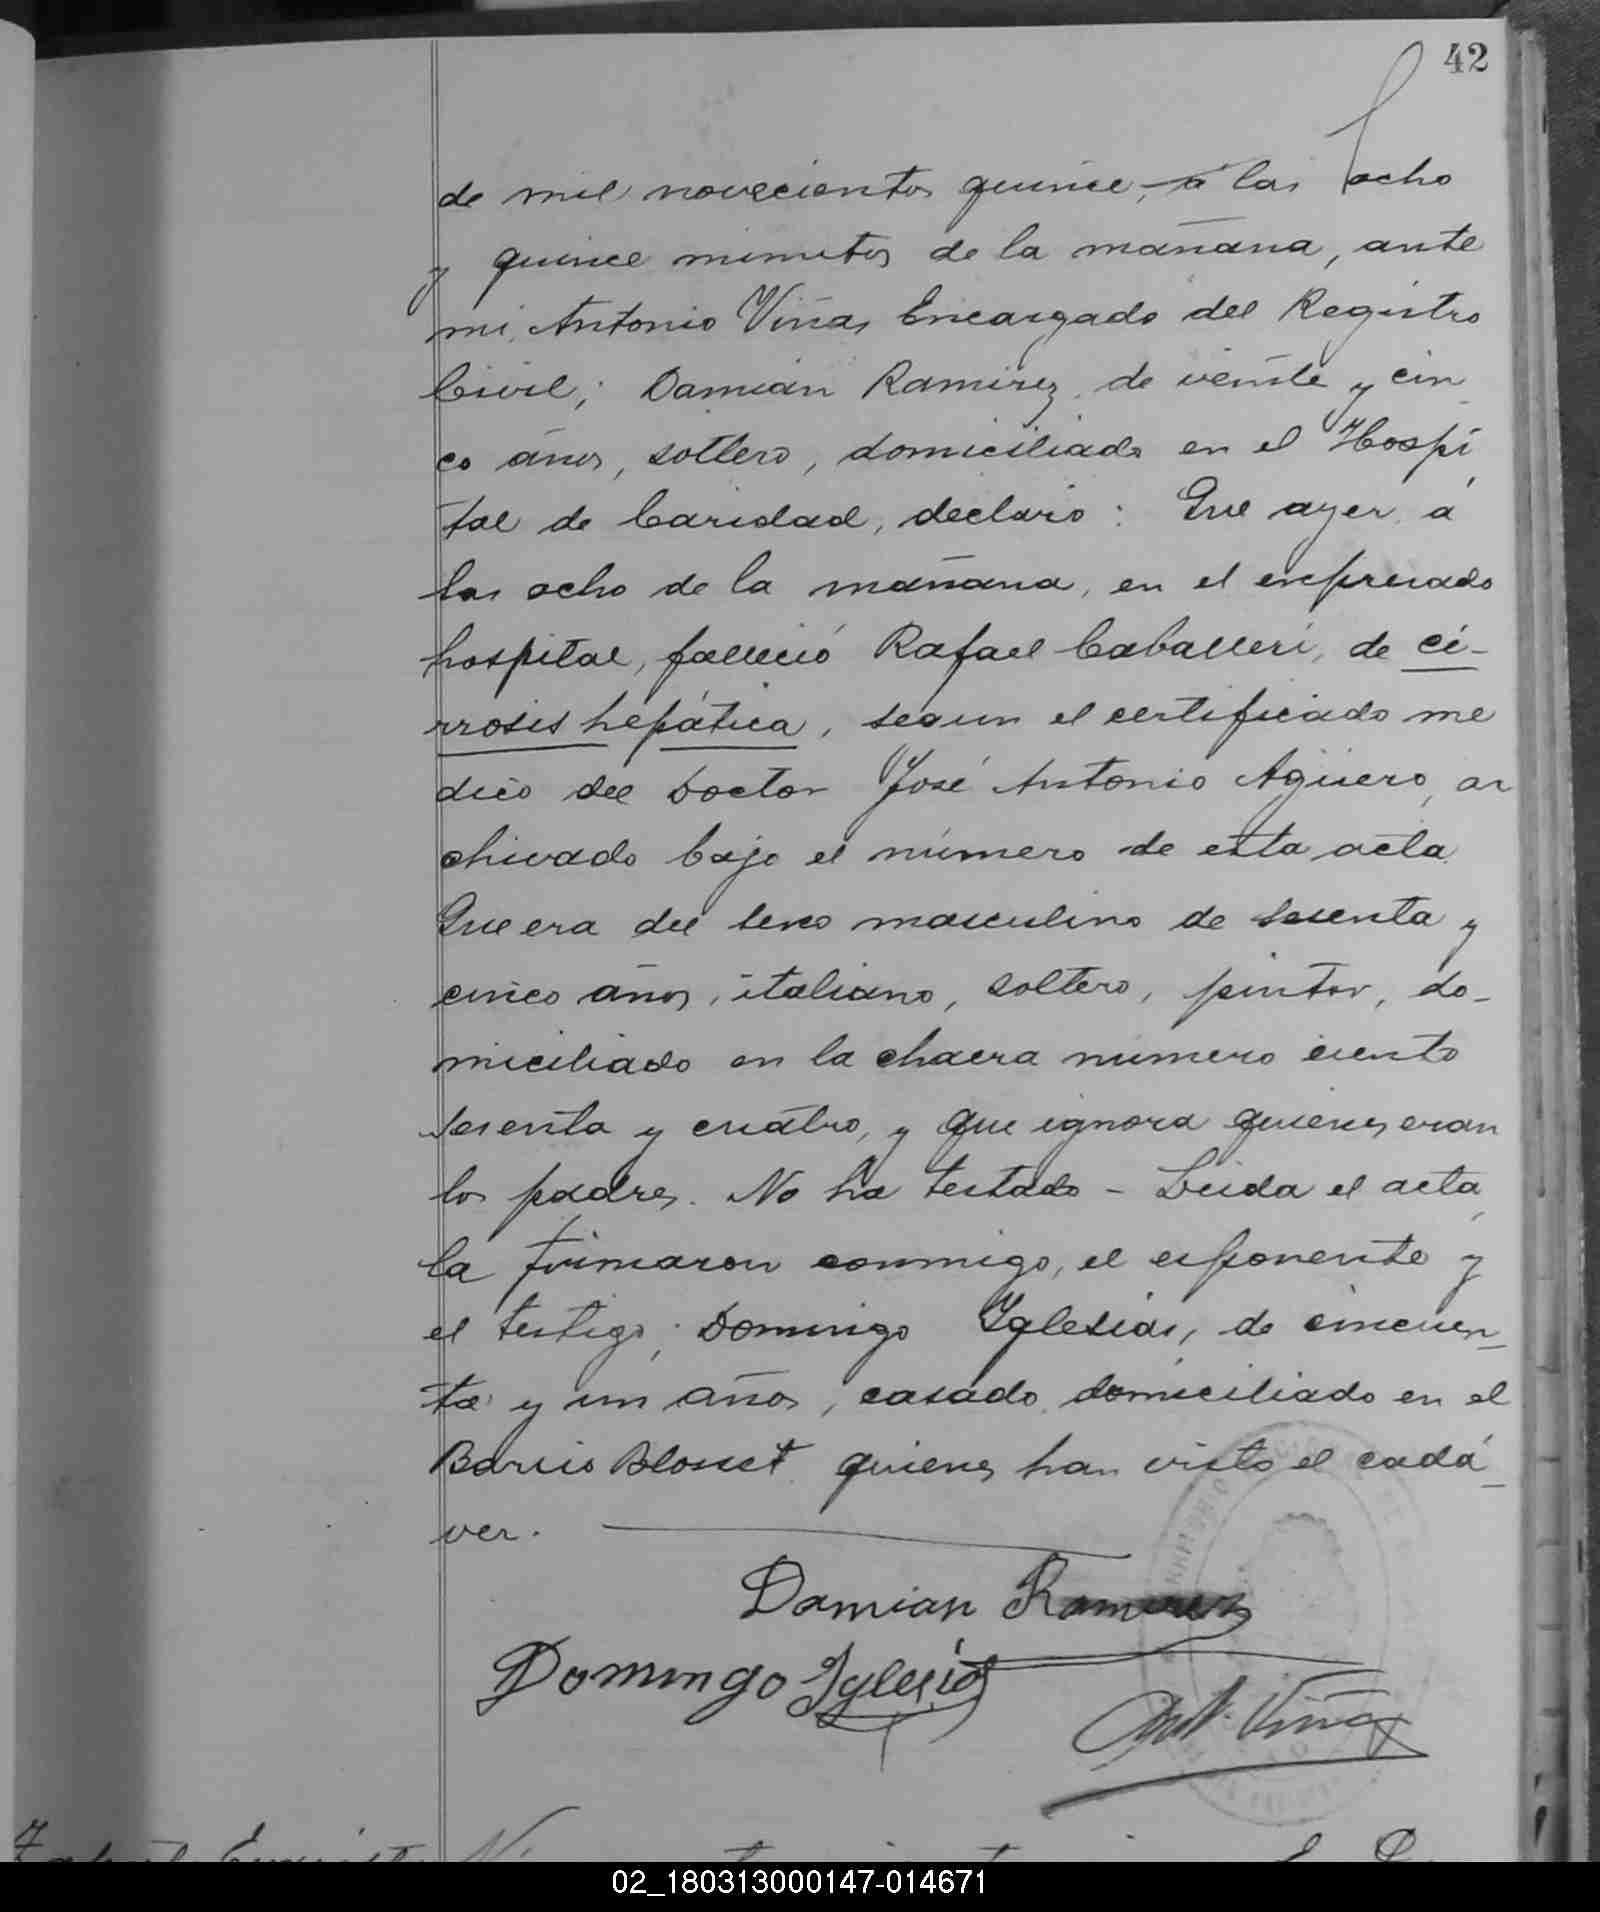 42
de mil novecientos quince, a las ocho
y quince minutos de la mañana, ante
mi, Antonio Viñas Encargado del Registro
Civil; Damián Ramirez, de veinte y cin
co años, soltero, domiciliado en el Hospi
tal de Caridad, declaró: Que ayer, á
las ocho de la mañana, en el expresado
hospital, falleció Rafael Caballeri, de ci-
rrosis hepática, segun el certificado me
dico del Doctor José Antonio Agüero, ar
chivado bajo el número de esta acta.
Que era del sexo masculino de sesenta y
cinco años, italiano, soltero, pintor, do-
miciliado en la chacra número ciento
sesenta y cuatro, y que ignora quienes eran
los padres. No ha testado - Leida el acta,
la firmaron conmigo, el exponente y
el testigo, Domingo Iglesias, de cincuen_
ta y un años, casado, domiciliado en el
Barrio quienes han visto el cadá_
ver.
Damian Ramirez
Domingo Iglesias
Ant. Viñas
02_180313000147-014671